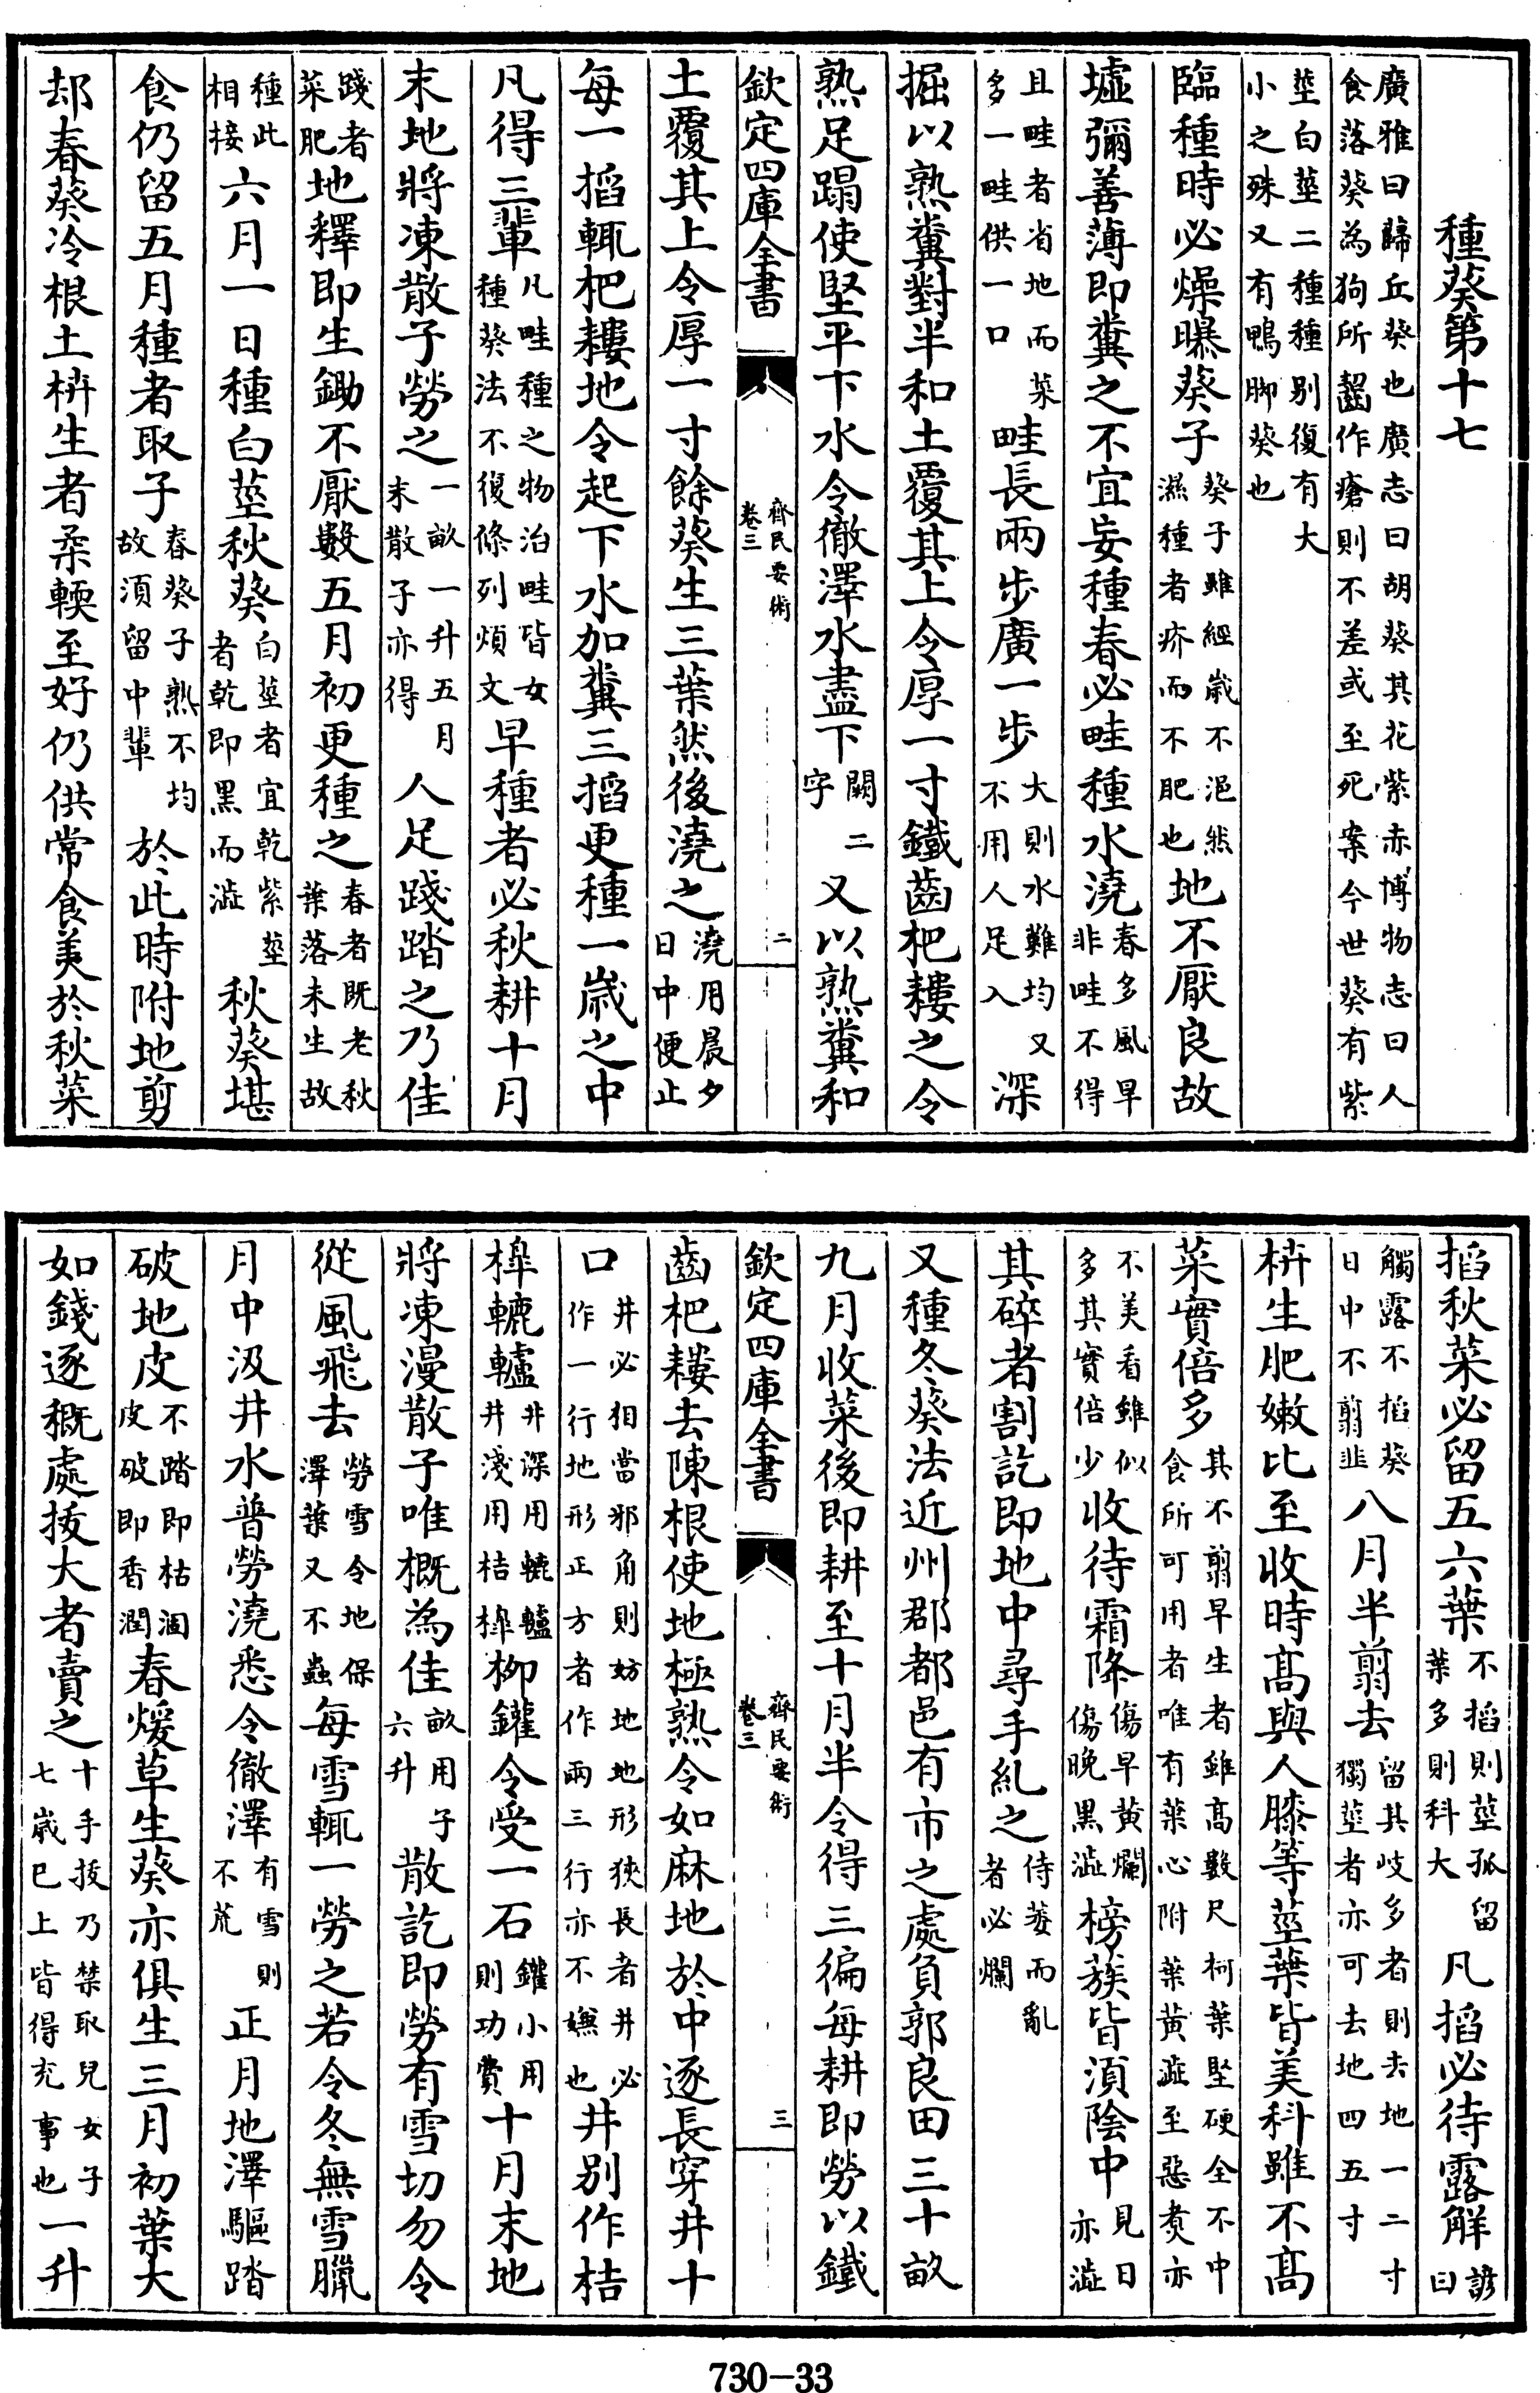 種葵第十七
廣雅曰蘬丘葵也廣志曰胡葵其花紫赤博物志曰人食落葵為狗所齧作瘡則不差或至死案今世葵有紫
莖白莖二種種别復有大小之殊又有鴨脚葵也
臨種時必燥曝葵子葵子雖經歲不浥然濕種者疥而不肥也地不厭良故
墟彌善薄即糞之不宜妄種春必畦種水澆春多風旱非畦不得
且畦者省地而菜多一畦供一口畦長兩步廣一步大則水難均又不用人足入深
掘以熟糞對半和土覆其上令厚一寸鐵齒杷耬之令
熟足蹋使堅平下水令徹澤水盡下闕二字又以熟糞和
欽定四庫全書 齊民要術卷三 二
土覆其上令厚一寸餘葵生三葉然後澆之澆用晨夕日中便止
每一搯輒杷耬地令起下水加糞三搯更種一歲之中
凡得三輩凡畦種之物治畦皆女種葵法不復條列煩文早種者必秋耕十月
末地將凍散子勞之一畝一升五月末散子亦得人足踐踏之乃佳
踐者菜肥地釋即生鋤不厭數五月初更種之春者既老秋葉落未生故
種此相接六月一日種白莖秋葵白莖者宜乾紫莖者乾即黑而澁秋葵堪
食仍留五月種者取子春葵子熟不均故須留中輩於此時附地剪
却春葵冷根土枿生者柔輭至好仍供常食美於秋菜
搯秋菜必留五六葉不搯則莖孤留葉多則科大凡搯必待露解諺曰
觸露不搯葵日中不剪韭八月半剪去留其岐多者則去地一二寸獨莖者亦可去地四五寸
枿生肥嫩比至收時髙與人膝等莖葉皆美科雖不髙
菜實倍多其不剪早生者雖髙數尺柯葉堅硬全不中食所可用者唯有葉心附葉黃澁至惡煑亦
不美看雖似多其實倍少收待霜降傷早黃爛傷晚黑澁榜蔟皆湏陰中見日亦澁
其碎者割訖即地中尋手糺之待萎而亂者必爛
又種冬葵法近州郡都邑有市之處負郭良田三十畝
九月收菜後即耕至十月半令得三徧每耕即勞以鐵
欽定四庫全書 齊民要術卷三 三
齒杷耬去陳根使地極熟令如麻地於中逐長穿井十
口井必相當邪角則妨地地形狹長者井必作一行地形正方者作兩三行亦不嫌也井别作桔
槹轆轤井深用轆轤井淺用桔槹柳鑵令受一石鑵小用則功費十月末地
將凍漫散子唯概為佳畝用子六升散訖即勞有雪切勿令
從風飛去勞雪令地保澤葉又不蟲每雪輒一勞之若令冬無雪臘
月中汲井水普勞澆悉令徹澤有雪則不荒正月地澤驅踏
破地皮不踏即枯涸皮破即香潤春煖草生葵亦俱生三月初葉大
如錢逐概處拔大者賣之十手拔乃禁取兒女子七歲已上皆得充事也一升
730-33